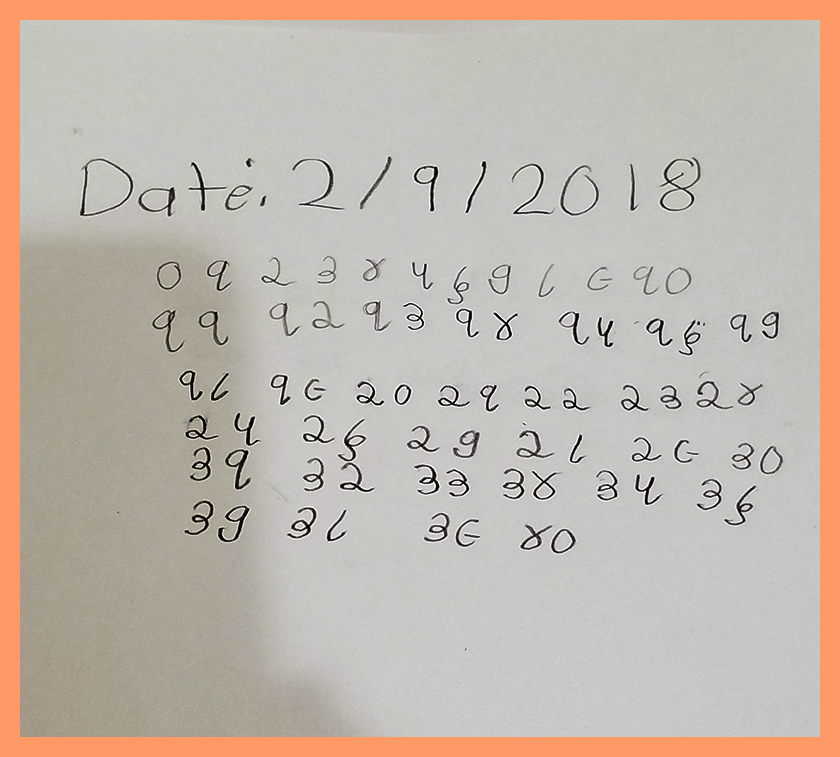 Date. 2/9/2018
० १ २ ३ ४ ५ ६ ७ ८ ९ १०
११ १२ १३ १४ १५ १६ १७
१८ १९ २० २१ २२ २३ २४
२५ २६ २७ २८ २९ ३०
३१ ३२ ३३ ३४ ३५ ३६
३७ ३८ ३९ ४०